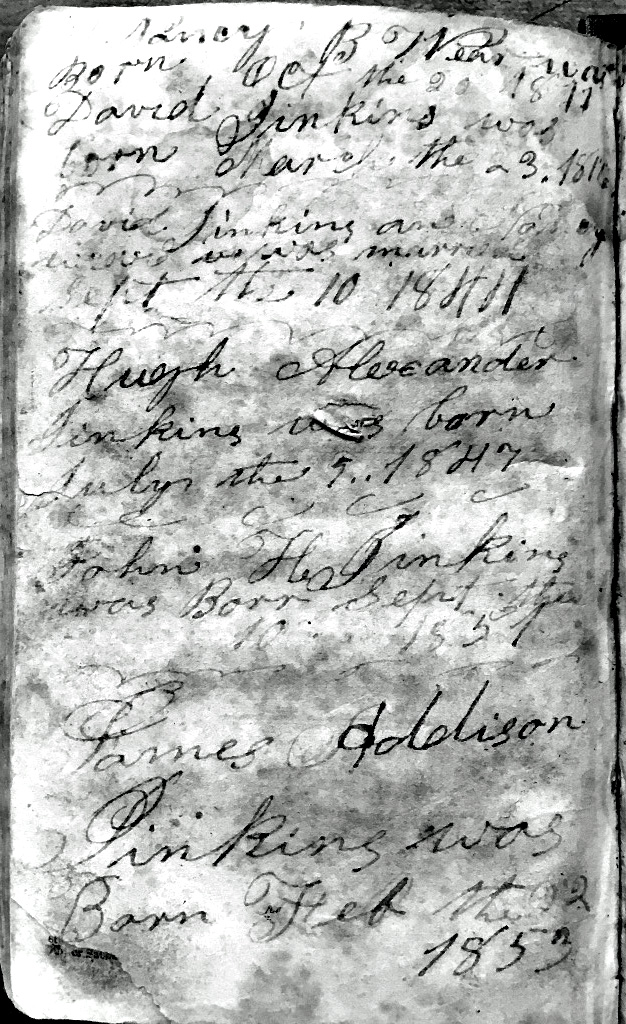 Nancy B Wear was
Born Oct the 20 1811
David Jinkins was
born March the 23. 181
David Jinkins and
was married
Sept the 10 1844
Hugh Alexander
Jinkins was born
July the 5.. 1847
John H Jinkins
was Born Sept the
10 185
James Addison
Jinkins was
Born Feb the 22
1853